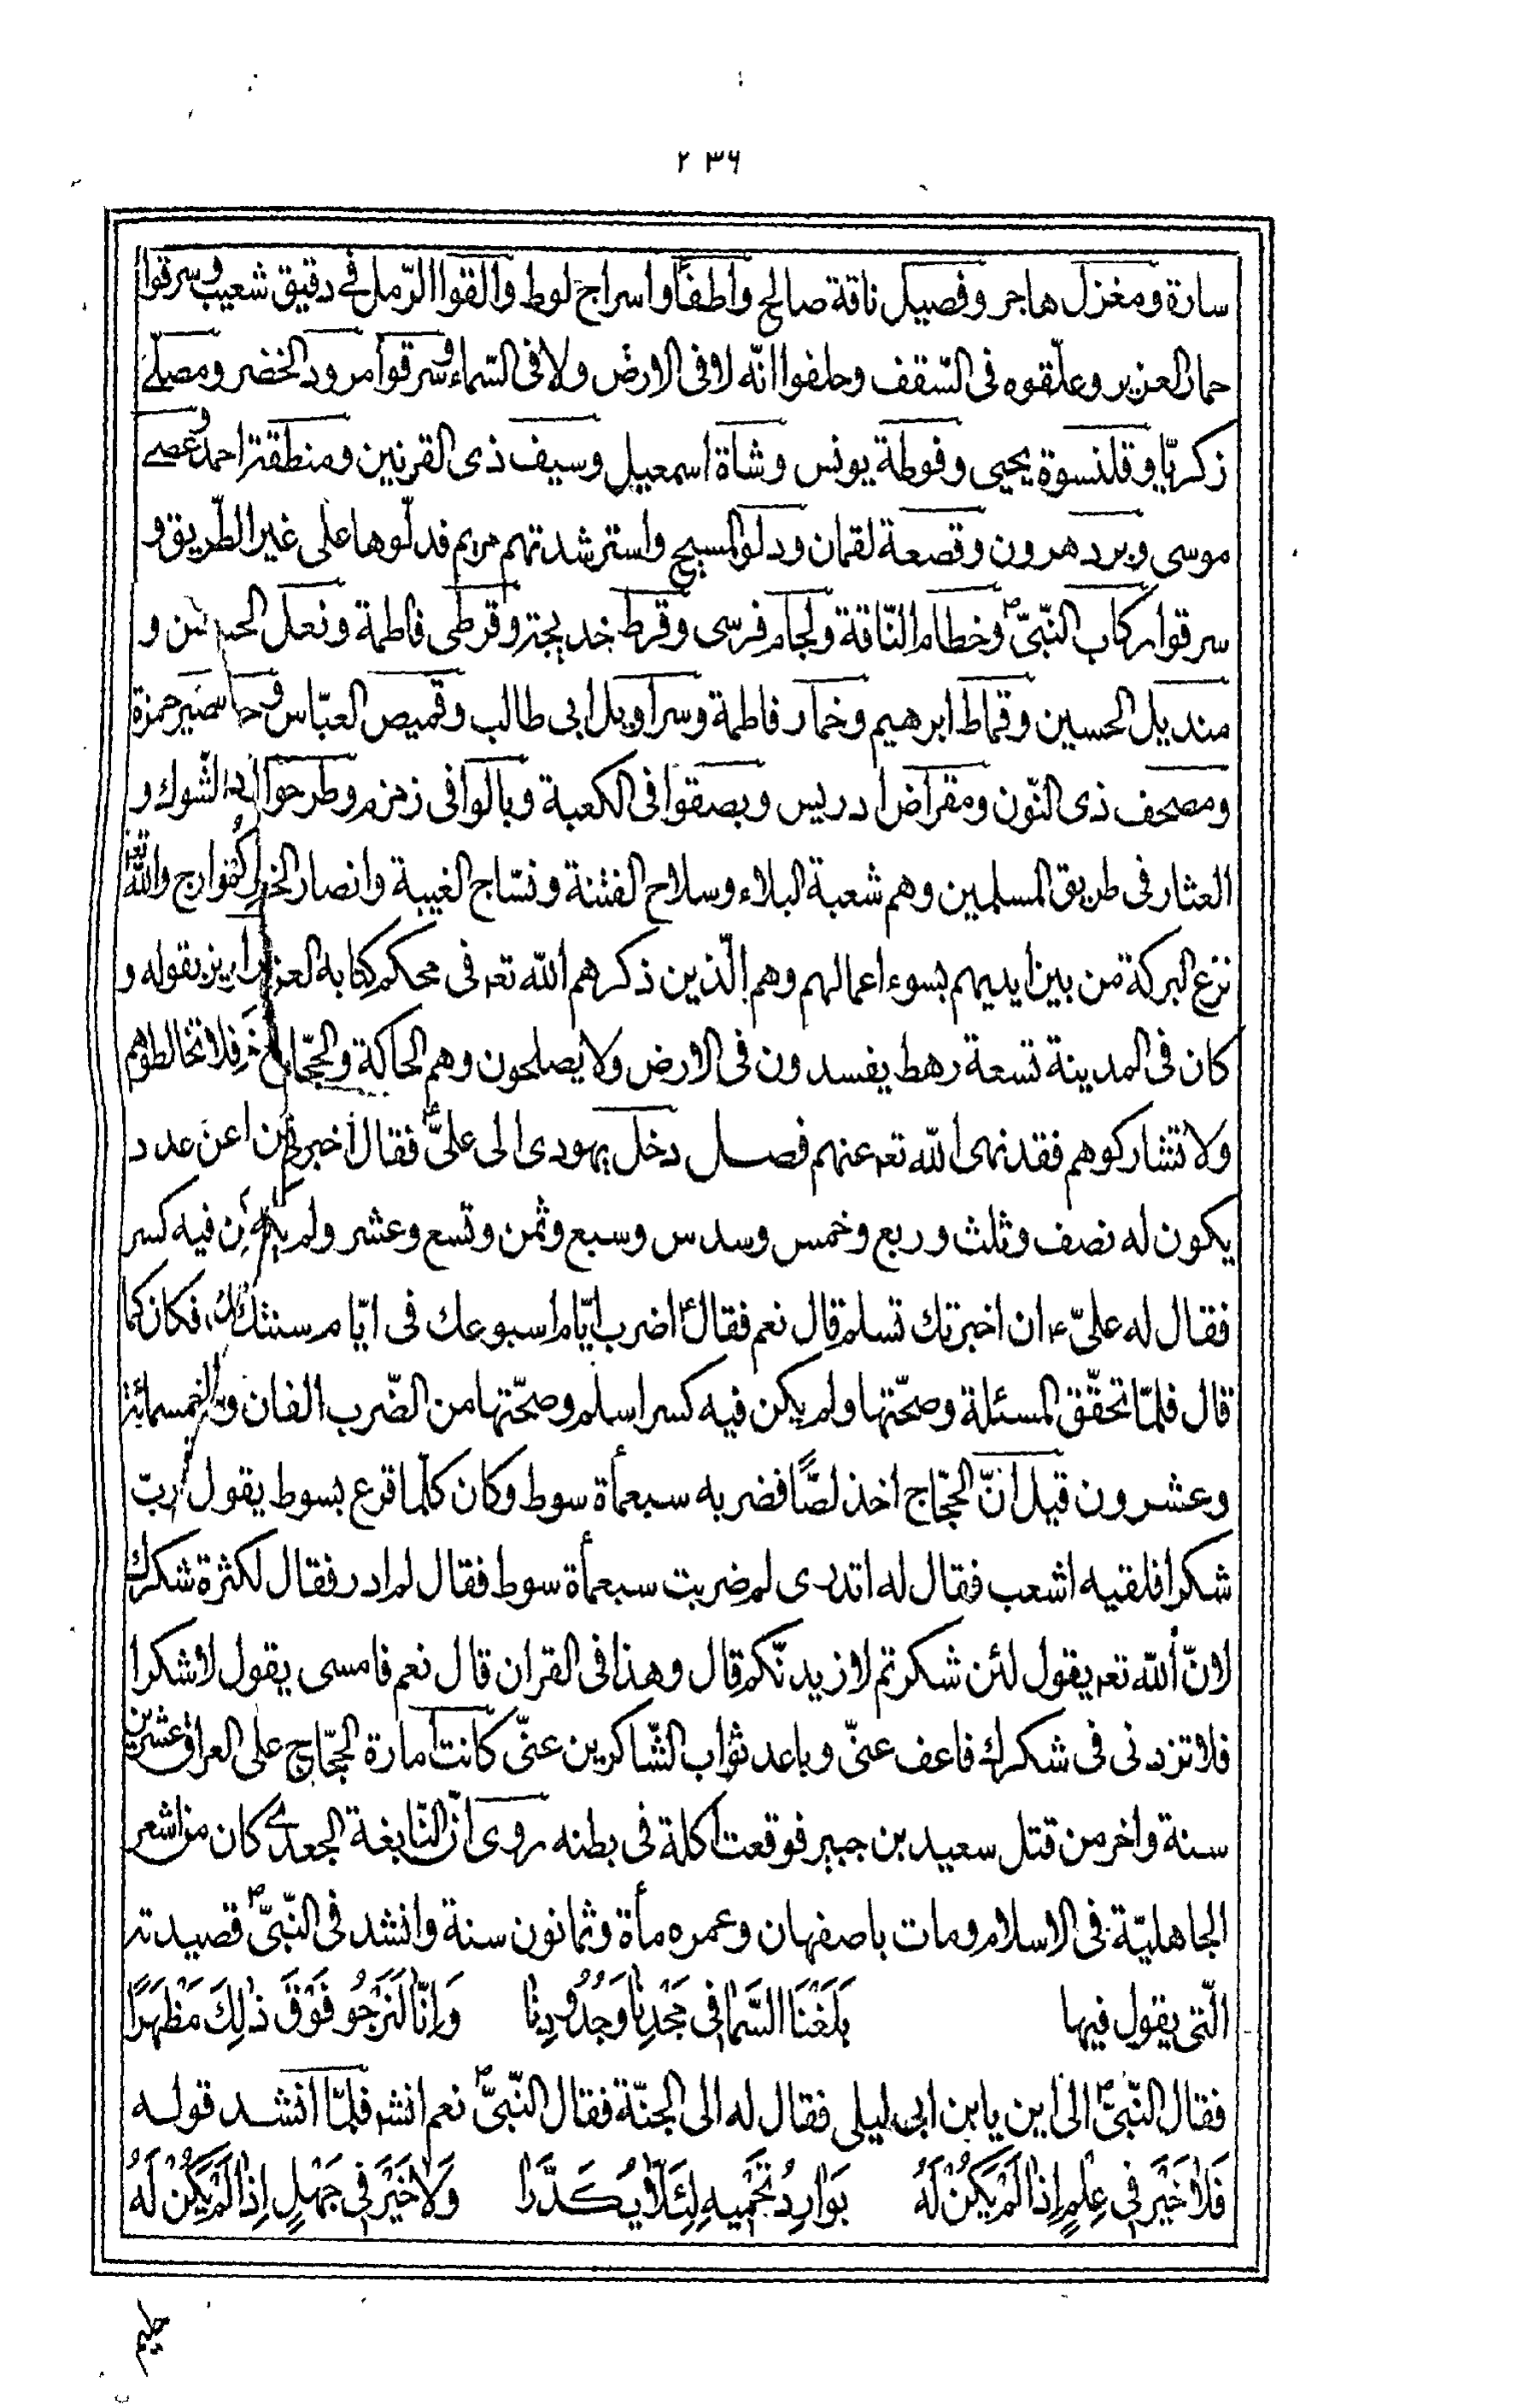 ٢٣٦
سارة ومغزل هاجر وفصيل ناقة صالح واطفأوا سراج لوط والقوا الرّمل فى دقيق شعيب وسرقوا
حمار العزير وعلّقوه فى السّقف وحلفوا انّه لا فى الارض ولا فى السّماء وسرقوا مرود الخضر ومصلّى
زكريّا وقلنسوة يحيى وفوطة يونس وشاة اسمعيل وسيف ذى القرنين ومنطقة احمد وعصى
موسى وبرد هرون وقصعة لقمان ودلو المسيح واسترشدتهم مريم فدلّوها على غير الطّريق و
سرقوا ركاب النّبىّ ص وخطام النّاقة ولجام فرسى وقرط خديجة وقرطى فاطمة ونعل الحسن و
منديل الحسين وقماط ابرهيم وخمار فاطمة وسراويل ابى طالب وقميص العبّاس وحصير حمزة
ومصحف ذى النّون ومقراض ادريس وبصقوا فى الكعبة وبالوا فى زمزم وطرحوا الشّوك و
العثار فى طريق المسلمين وهم شعبة البلاء وسلاح الفتنة ونسّاج الغيبة وانصار الخوارج والله تعه
نزع البركة من بين ايديهم بسوء اعمالهم وهم الّذين ذكرهم الله تعه فى محكم كتابه العزيز بقوله و
كان فى المدينة تسعة رهط يفسدون فى الارض ولا يصلحون وهم الحاكة والحجّام فلا تخالطوهم
ولا تشاركوهم فقد نهى الله تعه عنهم فصل دخل يهودى الى علىّ ع فقال اخبرنى عن عدد
يكون له نصف وثلث وربع وخمس وسدس وسبع وثمن وتسع وعشر ولم يكن فيه كسر
فقال له علىّ ع ان اخبرتك تسلم قال نعم فقال ع اضرب ايّام اسبوعك فى ايّام سنتك فكان كما
قال فلمّا تحقّق المسئلة وصحّتها ولم يكن فيه كسر اسلم وصحّتها من الضّرب الفان وخمسمائة
وعشرون قيل انّ الحجّاج اخذ لصًّا فضربه سبعمأة سوط وكان كلّما قرع بسوط يقول ربّ
شكرا فلقيه اشعب فقال له اتدرى لم ضربت سبعمأة سوط فقال لم ادر فقال لكثرة شكرك
لانّ الله تعه يقول لئن شكرتم لازيدنّكم قال وهذا فى القران قال نعم فامسى يقول لا شكرا
فلا تزدنى فى شكرك فاعف عنّى وباعد ثواب الشّاكرين عنّى كانت امارة الحجّاج على العراق عشرين
سنة واخر من قتل سعيد بن جبير فوقعت اكلة فى بطنه روى انّ النّابغة الجعدى كان من اشعر
الجاهليّة فى الاسلام ومات باصفهان وعمره مأة وثمانون سنة وانشد فى النّبىّ ص قصيدته
الّتى يقول فيها بَلَغْنَا السَّمَا فى مَجْدِنا وَجُدُودِنا وَاِنّا لَنَرْجُو فَوْقَ ذلِكَ مَظْهَرًا
فقال النّبىّ ص الى اين يا بن ابى ليلى فقال له الى الجنّة فقال النّبىّ ص نعم انشد فلمّا انشد قوله
فَلاٰ خَيْرَ فى عِلْمٍ اِذا لَمْ يَكُنْ لَهُ بَوٰارِدُ تَحْميهِ لِئَلّاٰ يُكَدَّرٰا وَلاٰ خَيْرَ فى جَهْلٍ اِذا لَمْ يَكُنْ لَهُ
حليم